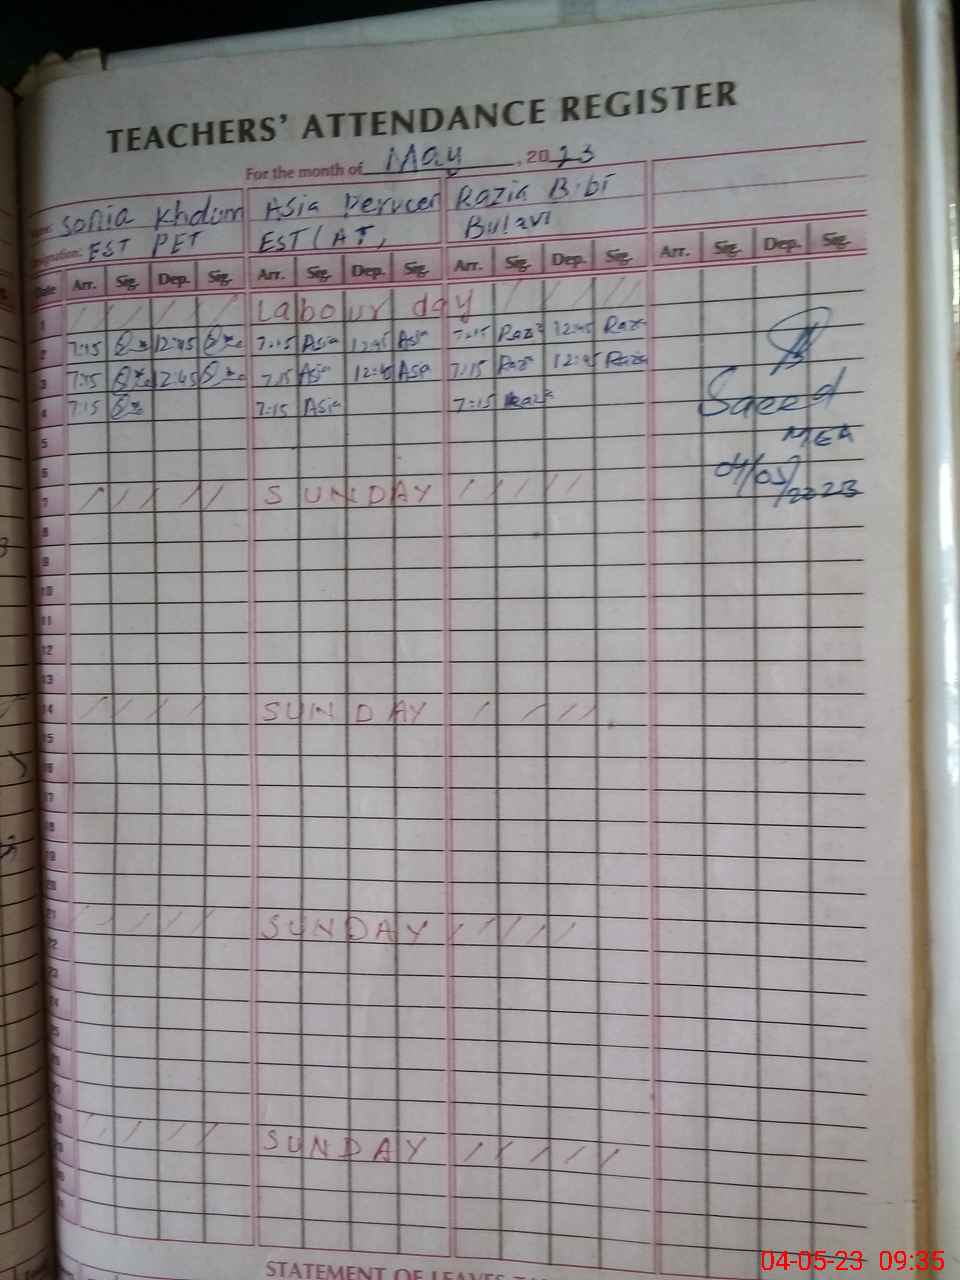 TEACHERS' ATTENDANCE REGISTER
For the month of May, 2023
Sonia Khdum Asia Perveen Razia Bibi
Designation: EST PET EST (AT)
Date Arr. Sig. Dep. Sig. Arr. Sig. Dep. Sig. Arr. Sig. Dep. Sig. Arr. Sig. Dep. Sig.
1 Labour day
2 7:15 12:45 7:15 Asia 12:45 Asia 7:15 12:45
3 7:15 12:45 7:15 Asia 12:45 Asia 7:15 12:45 Razia
4 7:15 7:15 Asia 7:15
Saeed
5
MEA
6
04/05/2023
7 SUNDAY
8
9
10
11
12
13
14 SUNDAY
15
16
17
18
19
20
21 SUNDAY
22
23
24
25
26
27
28 SUNDAY
29
30
31
STATEMENT OF LEAVES
04-05-23 09:35